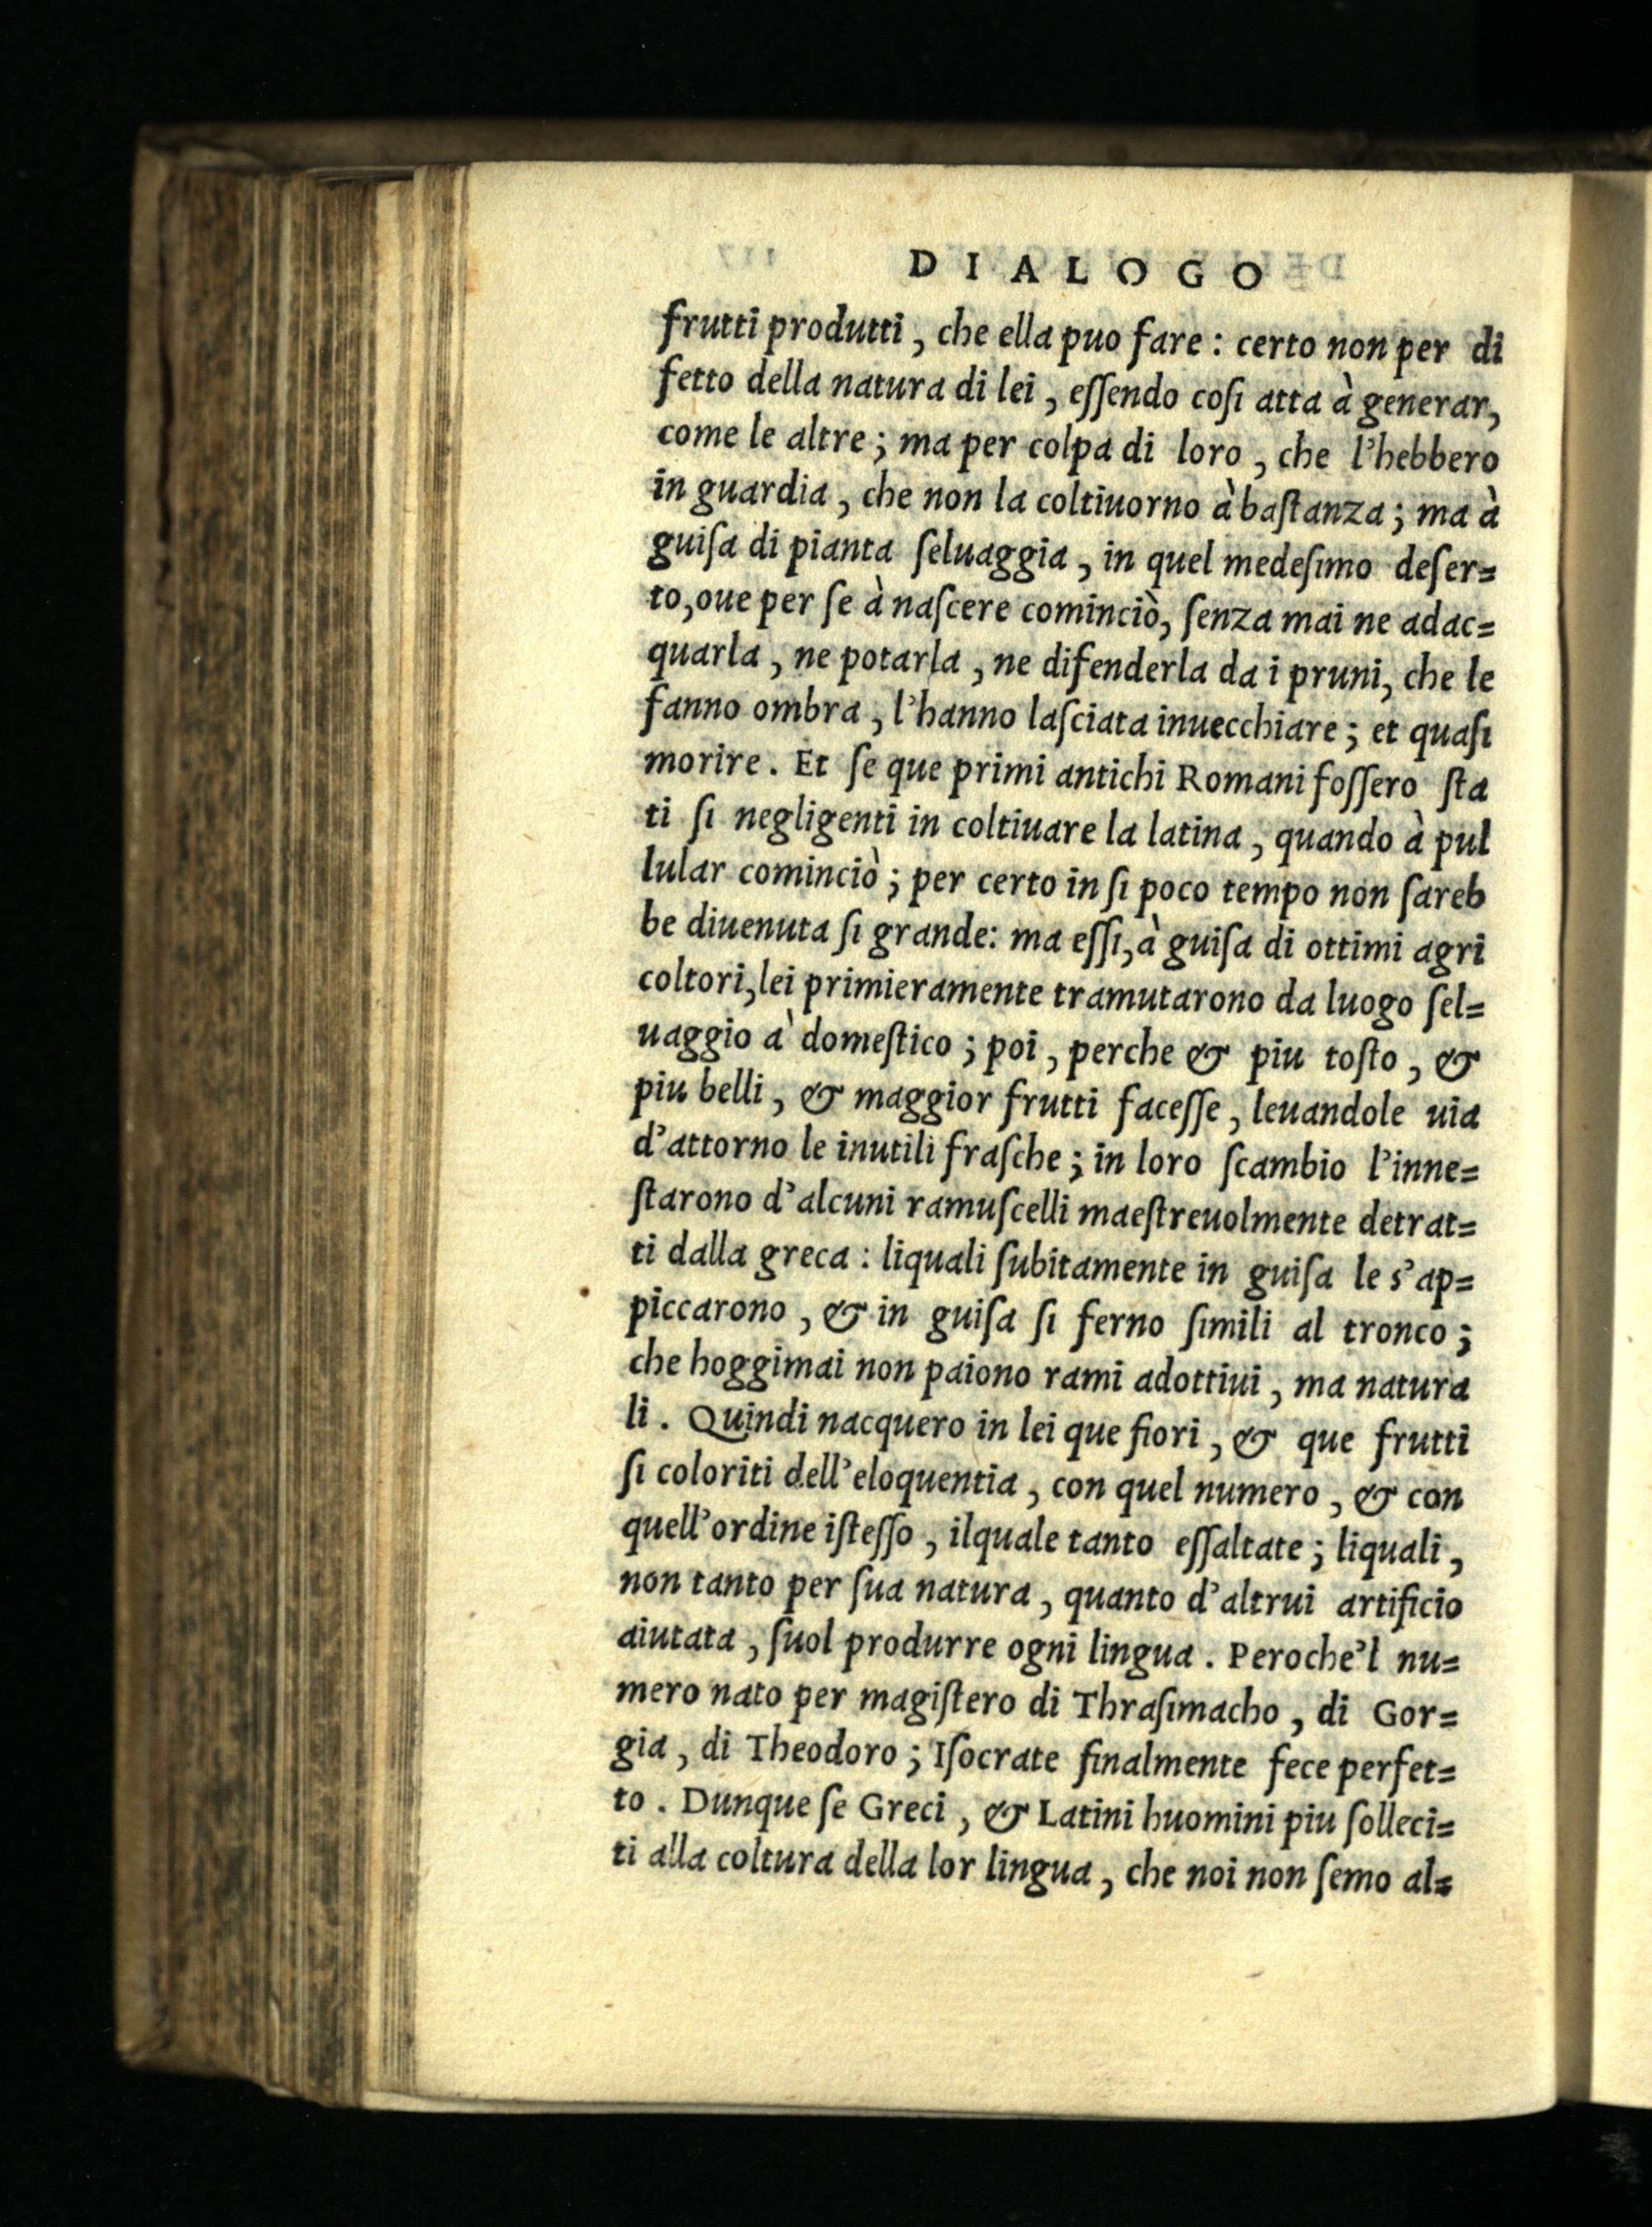 DIALOGO
frutti produtti, che ella puo fare: certo non per di
fetto della natura di lei, eſſendo coſi atta à generar,
come le altre; ma per colpa di loro, che l'hebbero
in guardia, che non la coltiuorno à baſtanza; ma à
guiſa di pianta ſeluaggia, in quel medeſimo deſer=
to, oue per ſe à naſcere cominciò, ſenza mai ne adac=
quarla, ne potarla, ne difenderla da i pruni, che le
fanno ombra, l'hanno laſciata inuecchiare; et quaſi
morire. Et ſe que primi antichi Romani foſſero ſta
ti ſi negligenti in coltiuare la latina, quando à pul
lular cominciò; per certo in ſi poco tempo non ſareb
be diuenuta ſi grande: ma eſſi, à guiſa di ottimi agri
coltori, lei primieramente tramutarono da luogo ſel=
uaggio à domeſtico; poi, perche & piu toſto, &
piu belli, & maggior frutti faceſſe, leuandole uia
d'attorno le inutili fraſche; in loro ſcambio l'inne=
ſtarono d'alcuni ramuſcelli maeſtreuolmente detrat=
ti dalla greca: liquali ſubitamente in guiſa le s'ap=
piccarono, & in guiſa ſi ferno ſimili al tronco;
che hoggimai non paiono rami adottiui, ma natura
li. Quindi nacquero in lei que fiori, & que frutti
ſi coloriti dell'eloquentia, con quel numero, & con
quell'ordine iſteſſo, ilquale tanto eſſaltate; liquali,
non tanto per ſua natura, quanto d'altrui artificio
aiutata, ſuol produrre ogni lingua. Peroche'l nu=
mero nato per magiſtero di Thraſimacho, di Gor=
gia, di Theodoro; Iſocrate finalmente fece perfet=
to. Dunque ſe Greci, & Latini huomini piu ſolleci=
ti alla coltura della lor lingua, che noi non ſemo al=